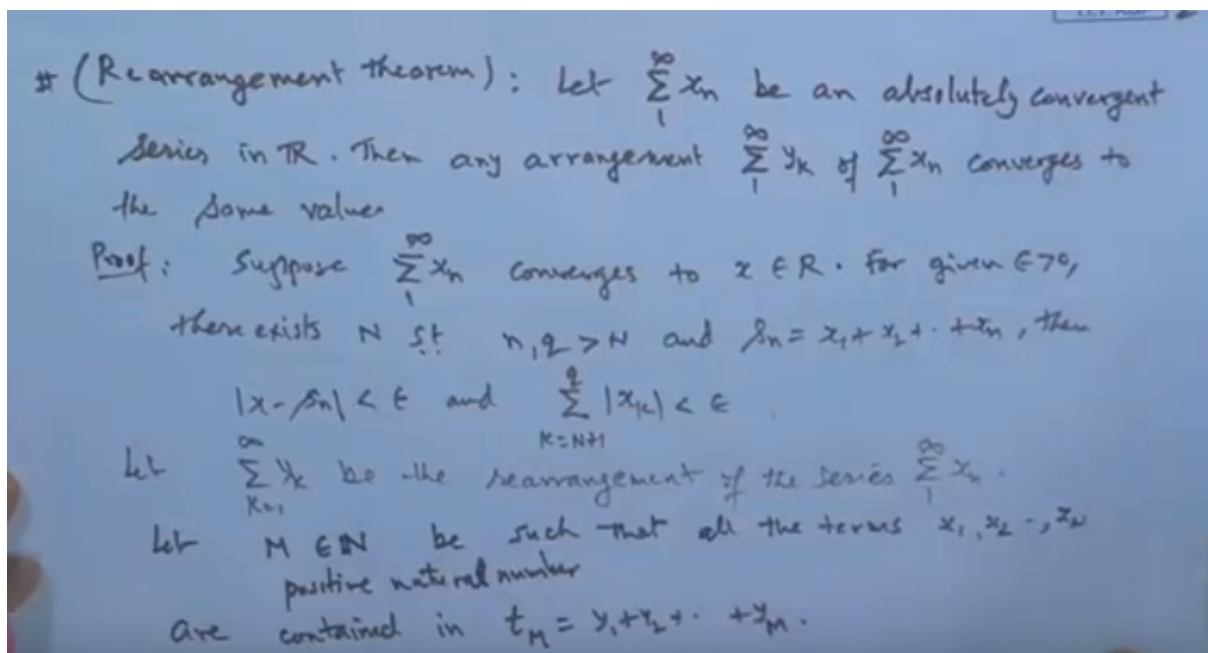 # (Rearrangement theorem): Let ∑_1^∞ xₙ be an absolutely convergent
series in ℝ. Then any arrangement ∑_1^∞ yₖ of ∑_1^∞ xₙ converges to
the same value
Proof: Suppose ∑_1^∞ xₙ converges to x ∈ R. For given ∈>0,
there exists N st n,q > N and sₙ = x₁+x₂+..+xₙ, then
|x-sₙ| < ∈ and ∑_{k=N+1}^q |xₖ| < ∈
Let ∑_{k=1}^∞ yₖ be the rearrangement of the series ∑_1^∞ xₙ.
Let M ∈ ℕ be such that all the terms x₁, x₂ .., x_N
positive natural number
are contained in t_M = y₁+y₂+. +y_M.